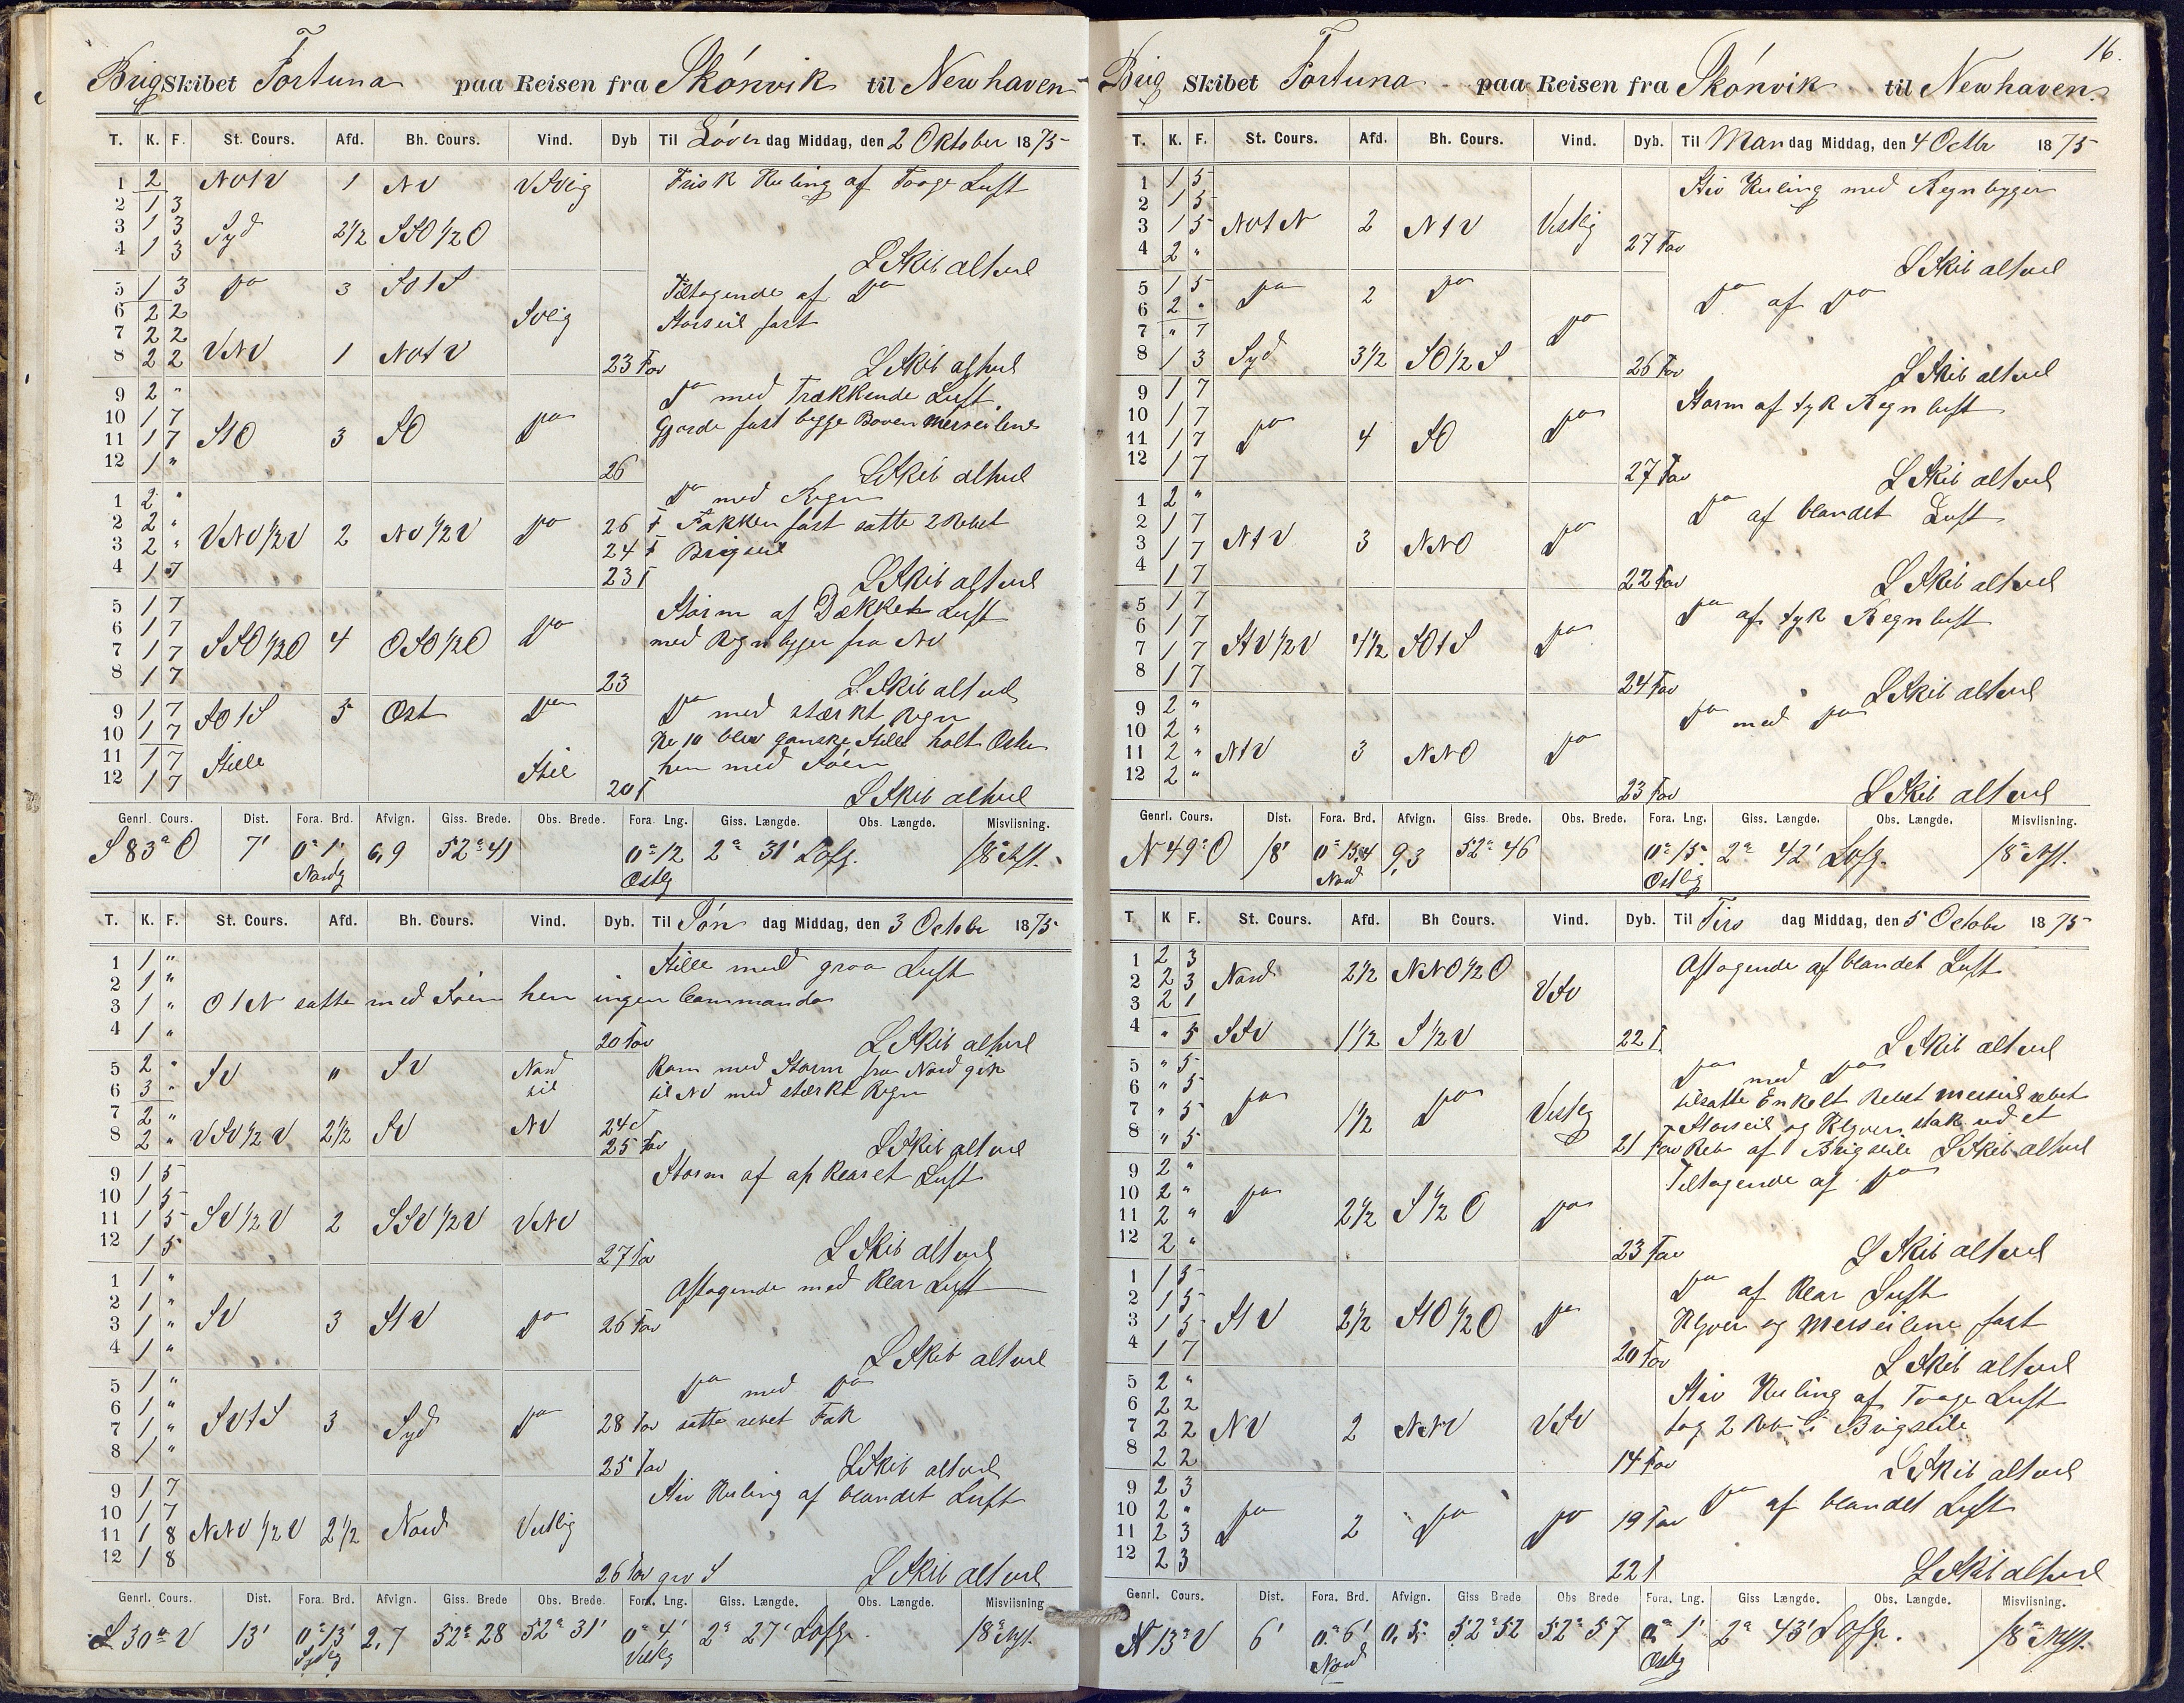 Brig Skibet Fortuna paa Reisen fra Skónvik til Newhaven
T. K. F. St. Cours. Afd. Bh. Cours. Vind. Dyb Til Löver dag Middag, den 2 Oktober 1875
1 2 NOtV 1 NV VSVlig Frisk Kuling af Taage Luft
2 1 3
3 1 3 Syd 2 1/2 SSO 1/2 O
4 1 3 L Skib altvel
5 1 3 Do 3 SOtS Tiltagende af Do
6 2 2 SVlig Storseil fast
7 2 2
8 2 2 VNV 1 NOtV 23 Fav L Skib altvel
9 2 " Do med Trækkende Luft
10 1 7 Gjorde fast begge Boven Merseilene
11 1 7 StO 3 SO Do
12 1 " 26 L Skib altvel
1 2 " Do med Regn
2 2 " VNV 1/2 V 2 NV 1/2 V Do 26 F Fakken fast satte 2 Rebet
3 2 " 24 F Brigseil
4 1 7 23 F L Skib altvel
5 1 7 Storm af Dækket Luft
6 1 7 SSO 1/2 O 4 OSO 1/2 O Do med Regnbyger fra NV
7 1 7
8 1 7 23 L Skib altvel
9 1 7 SOtS 5 Ost Do Do med stærkt Regn
10 1 7 Kl 10 blev ganske Stille holt Oster
11 1 7 Stille Stil hen med Söen
12 1 7 20 F L Skib altvel
Genrl. Cours. Dist. Fora. Brd. Afvign. Giss. Brede. Obs. Brede. Fora. Lng. Giss. Længde. Obs. Længde. Misviisning.
S 83° O 7' 0° 1' Nordlig 6,9 52° 41 0° 12 Ostlig 2° 31' Lofg. 18° Vst.
T. K. F. St. Cours. Afd. Bh. Cours. Vind. Dyb. Til Sön dag Middag, den 3 October 1875
1 1 " Stille med graa Luft
2 1 "
3 1 " OtN satte med Söen hen ingen Commando
4 1 " 20 Fav L Skib altvel
5 2 " SV " SV Nord Kom med Storm fra Nord gik
6 3 " til til NV med stærkt Regn
7 2 " 24 F
8 2 " VSV 1/2 V 2 1/2 SV NV 25 Fav L Skib altvel
9 1 5 Storm af Luft
10 1 5
11 1 5 SV 1/2 V 2 SSV 1/2 V VNV
12 1 5 27 Fav L Skib altvel
1 1 " Aftagende med Klar Luft
2 1 "
3 1 " SV 3 StV Do 26 Fav
4 1 " L Skib altvel
5 1 " Do med Do
6 1 "
7 1 " SVtS 3 Syd Do 28 Fav satte rebet Fok
8 1 " 25 Fav L Skib altvel
9 1 7 Stiv Kuling af blandet Luft
10 1 7
11 1 8 NNV 1/2 V 2 1/2 Nord Vestlig
12 1 8 26 Fav grov S L Skib altvel
Genrl. Cours. Dist. Fora. Brd. Afvign. Giss. Brede Obs. Brede. Fora. Lng. Giss. Længde. Obs. Længde. Misviisning
S 30° V 13' 0° 13' Sydlig 2,7 52° 28 52° 31' 0° 4' Vestlig 2° 27' Lofg. 18° Vst.
16.
Brig Skibet Fortuna paa Reisen fra Skónvik til Newhaven.
T. K. F. St. Cours. Afd. Bh. Cours. Vind. Dyb. Til Man dag Middag, den 4 Octbr 1875
1 1 5 Stiv Kuling med Regnbyger
2 1 5
3 1 5 NOtN 2 NtV Vestlig
4 2 " 27 Fav L Skib altvel
5 1 5 Do 2 Do Do af Do
6 2 "
7 " 7 Do
8 1 3 Syd 3 1/2 SO 1/2 S 26 Fav L Skib altvel
9 1 7 Storm af tyk Regn luft
10 1 7
11 1 7 Do 4 SO Do
12 1 7 27 Fav L Skib altvel
1 2 " Do af blandet Luft
2 1 7
3 1 7 NtV 3 NNO Do
4 1 7 22 Fav L Skib altvel
5 1 7 Do af tyk Regn luft
6 1 7
7 1 7 StV 1/2 V 4 1/2 SOtS Do
8 1 7 24 Fav L Skib altvel
9 2 " Do med Do
10 2 "
11 2 " NtV 3 NNO Do
12 2 " 23 Fav L Skib altvel
Genrl. Cours. Dist. Fora. Brd. Afvign. Giss. Brede. Obs. Brede. Fora. Lng. Giss. Længde. Obs. Længde. Misviisning.
N 49° O 18' 0° 15,4 Nord 9,3 52° 46 0° 15' Ostlig 2° 42' Lofg. 18° Vst.
T K F. St. Cours. Afd. Bh Cours. Vind. Dyb. Til Tirs dag Middag, den 5 Octobr 1875
1 2 3 Aftagende af blandet Luft
2 2 3 Nord 2 1/2 NNO 1/2 O VSV
3 2 1
4 " 5 SSV 1 1/2 S 1/2 V 22 F. L Skib altvel
5 " 5 Do med Do
6 " 5 tilsatte Enkelt Rebet Merseil rebet
7 " 5 Do 1 1/2 Do Vestlig Storseil og Klyver stak ud et
8 " 5 21 Fav Reb af Brigseile L Skib altvel
9 2 " Tiltagende af Do
10 2 "
11 2 " Do 2 1/2 S 1/2 O Do
12 2 " 23 Fav L Skib altvel
1 1 5 Do af Klar Luft
2 1 5 Klyver og Merseilene fast
3 1 5 StV 2 1/2 StO 1/2 O Do
4 1 7 20 Fav L Skib altvel
5 2 " Stiv Kuling af Taage Luft
6 2 2 tog 2 Reb i Brigseile
7 2 2 NV 2 NNV VSV
8 2 2 14 Fav L Skib altvel
9 2 3 Do af blandet Luft
10 2 " Do 2 Do Do 19 Fav
11 2 3
12 2 3 22 F L Skib altvel
Genrl. Cours. Dist. Fora. Brd. Afvign. Giss Brede Obs Brede Fora. Lng. Giss Længde. Obs. Længde. Misviisning.
N 13° V 6' 0° 6' Nord 0,5 52° 52 52° 57 0° 1' Ostlig 2° 43' Lofg. 18° Vst.